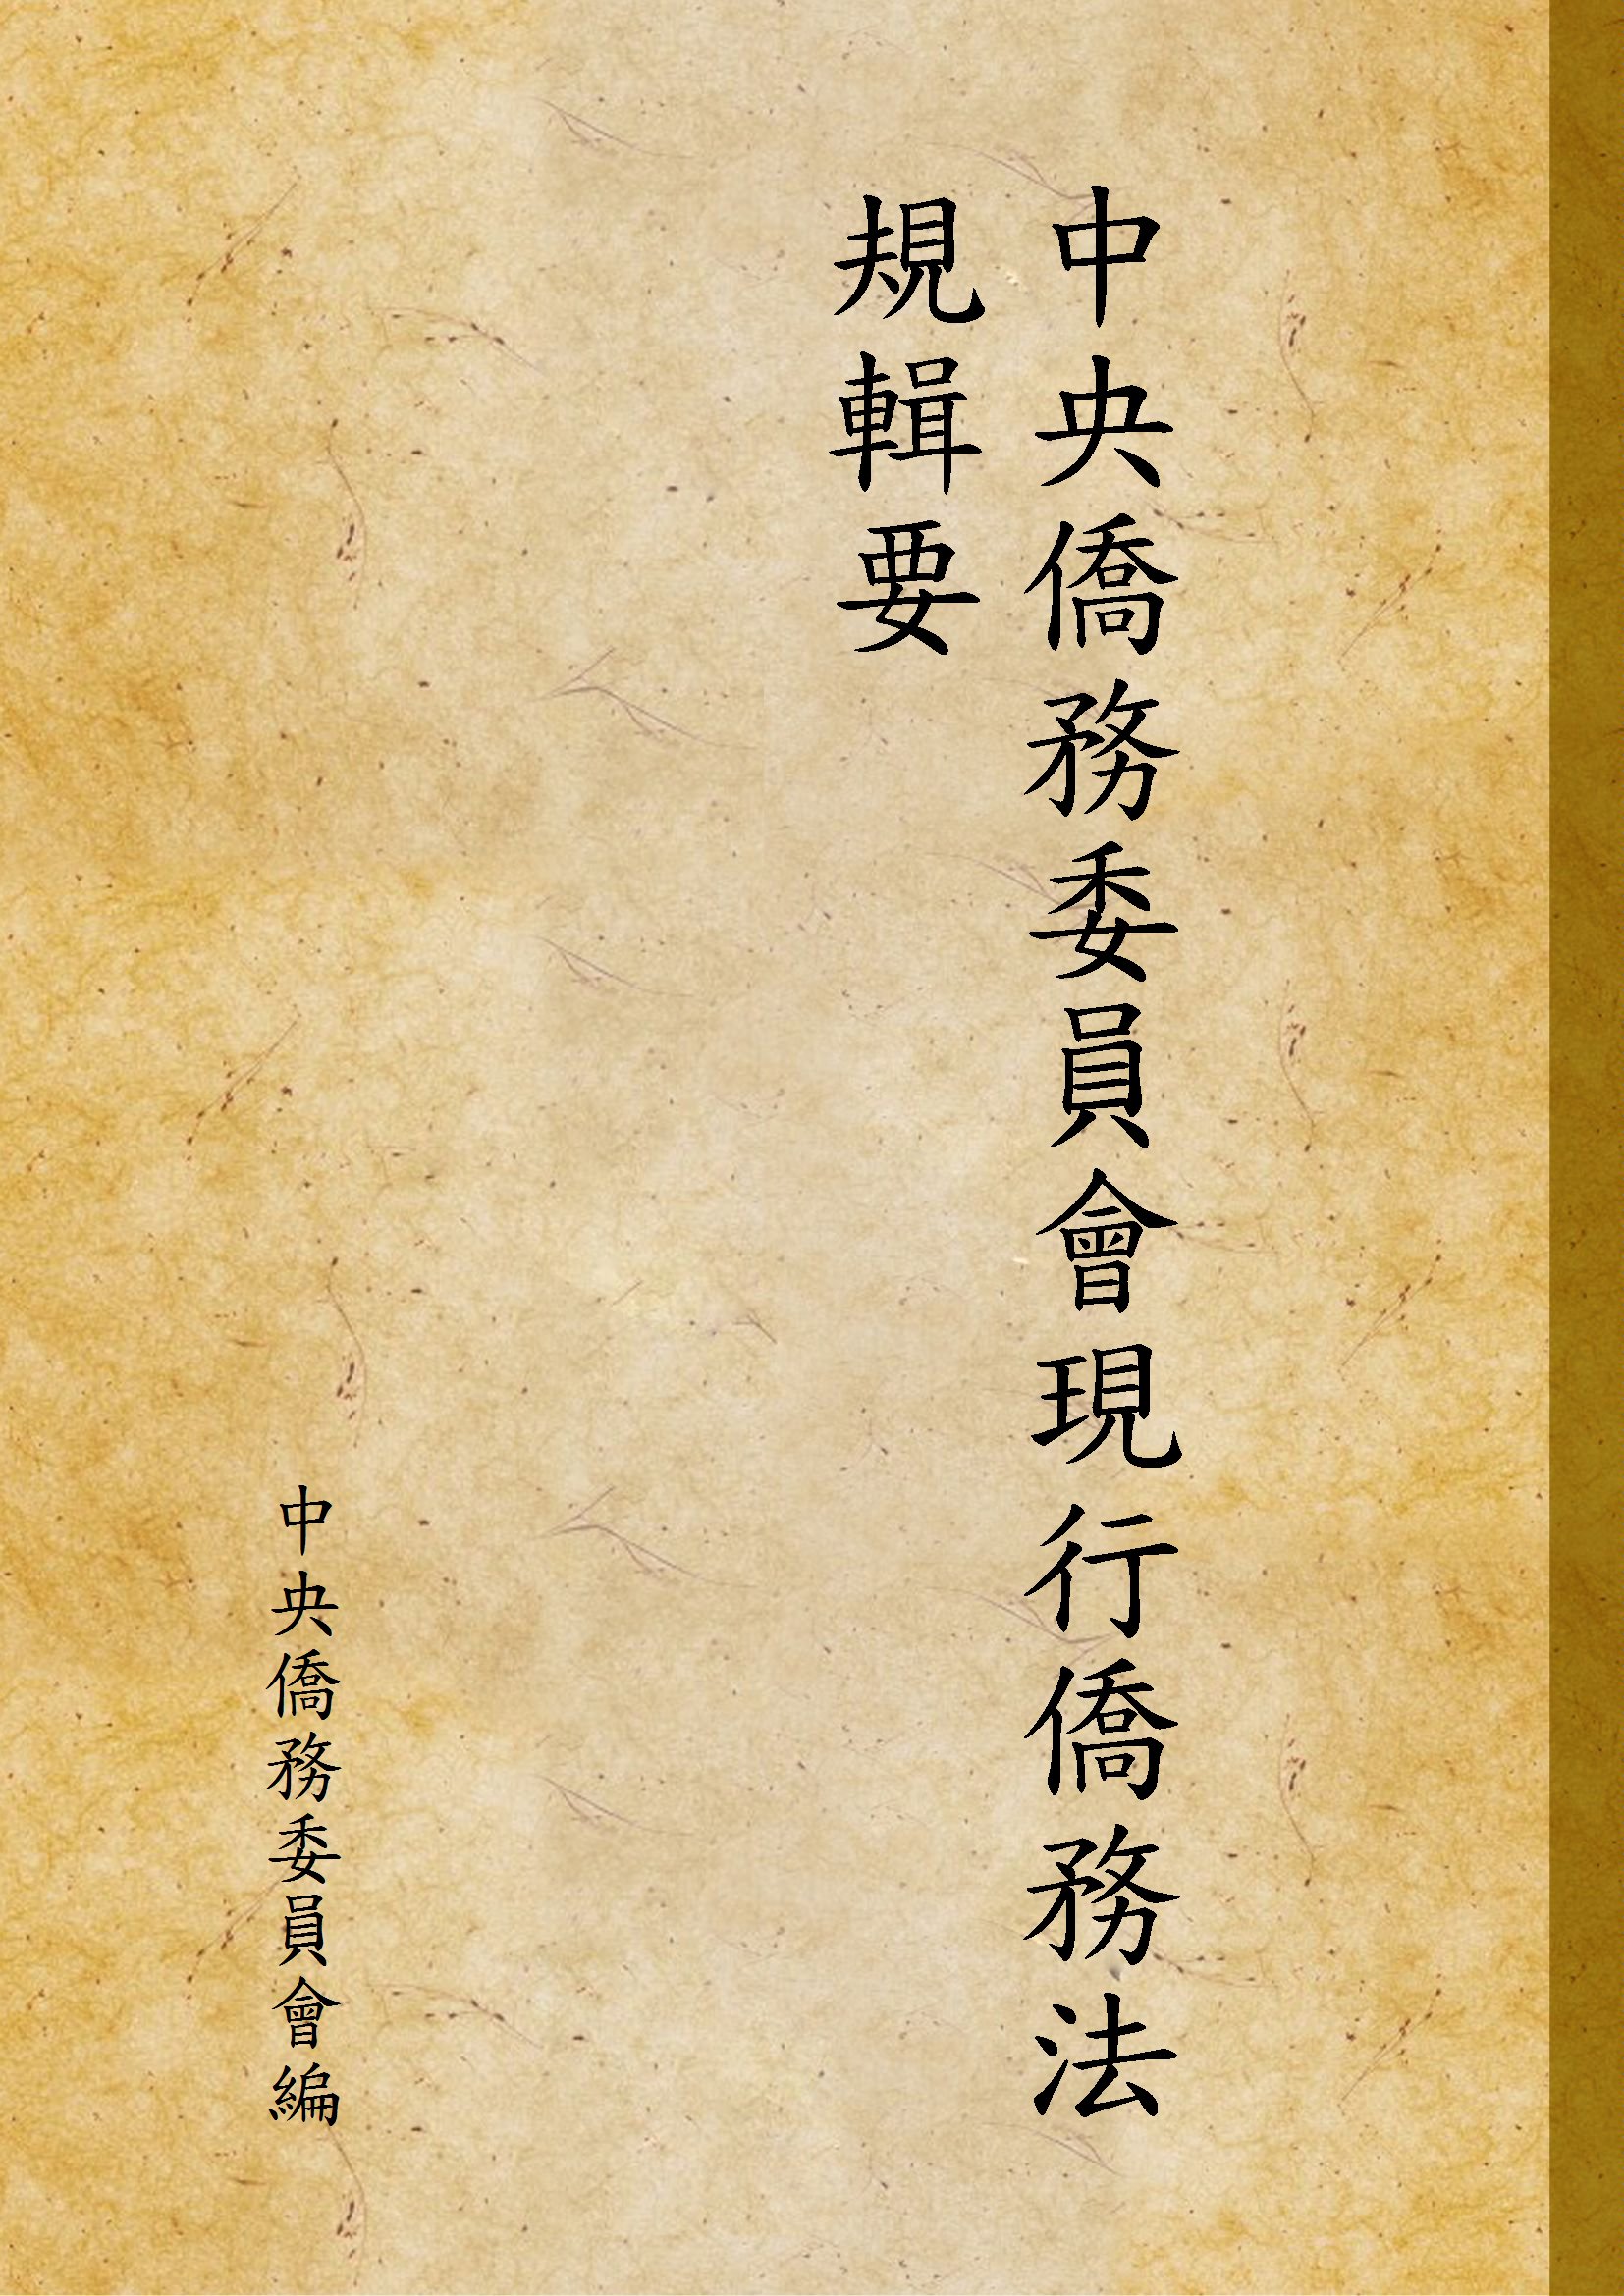 中央僑務委員會現行僑務法
規輯要
中央僑務委員會編